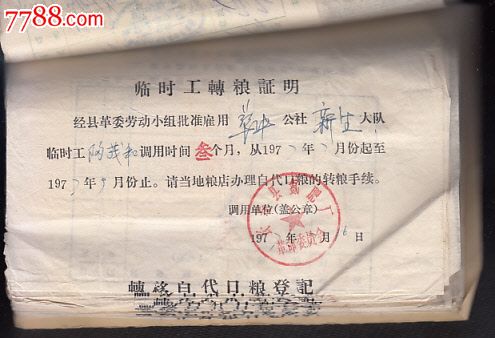 7788.com
临时工轉粮証明
经县革委劳动小组批准雇用 公社 新生 大队
临时工 陶茂和 调用时间 叁 个月，从197 年 月份起至
197 年 月份止。请当地粮店办理自代口粮的转粮手续。
调用单位(盖公章)
县 肥厂
革命委员会
197 年 月 6 日
轉移自代口粮登記